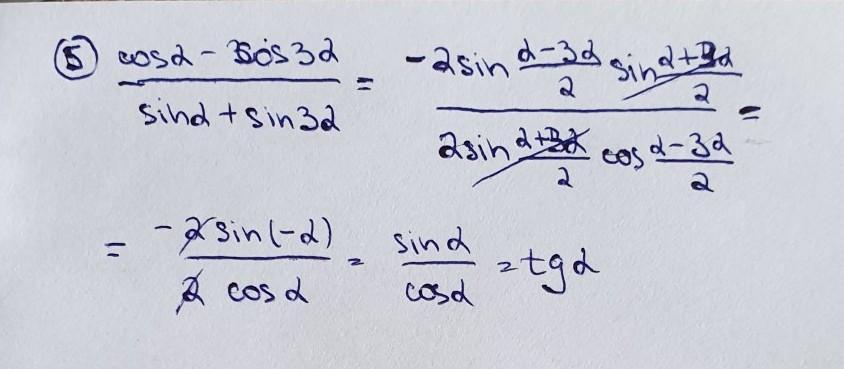 ⑤ (cosα - cos3α)/(sinα + sin3α) = (-2sin (α-3α)/2 sin (α+3α)/2)/(2sin (α+3α)/2 cos (α-3α)/2) =
= (-2sin(-α))/(2 cosα) = sinα/cosα = tgα